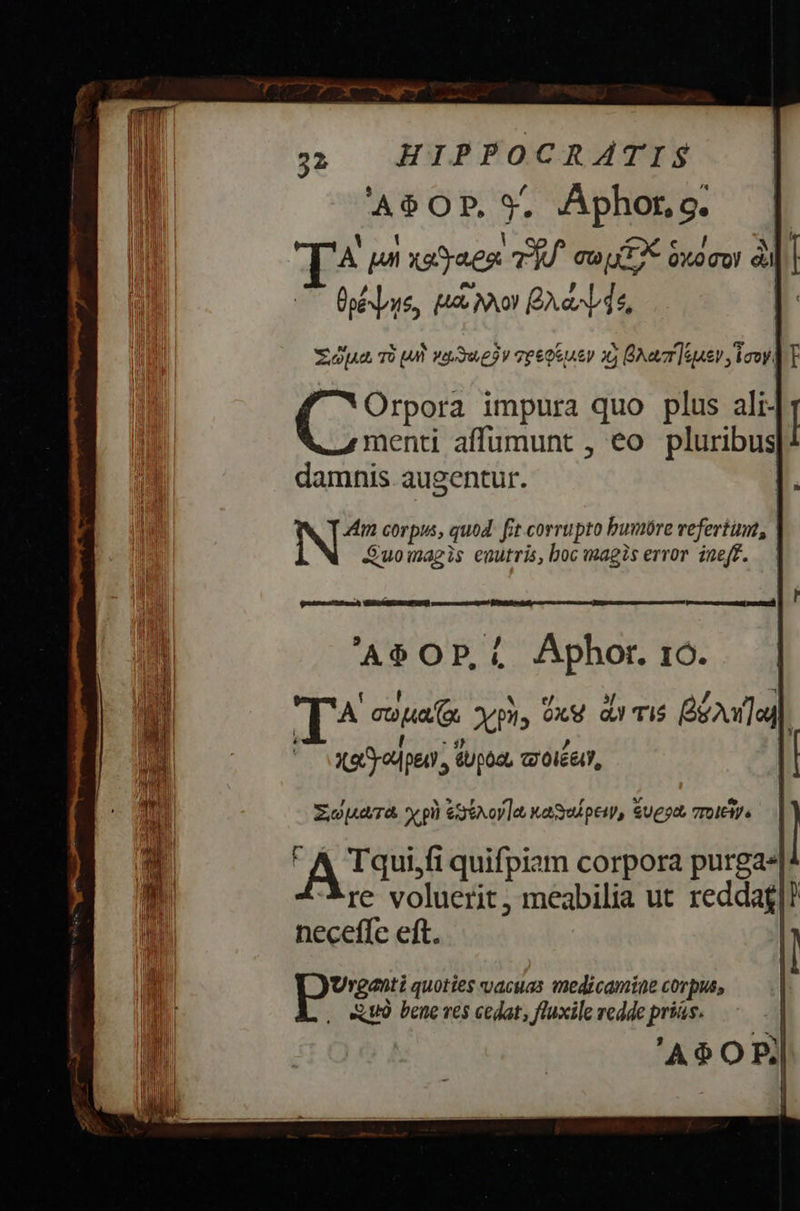 32 HIPPOCRATIS
ἈΦΟΡ. θ'. Aphor. 9.
ΤᾺ μὴ καθαρὰ τῶν σωμάτων ὁκόσον ἂν
θρέψῃς, μᾶλλον βλάψεις.
Σῶμα τὸ μὴ καθαρὸν τρεφέμεν καὶ βλαπτέμεν, ἶσον.
COrpora impura quo plus ali-
menti aſſumunt, eo pluribus
damnis augentur.
NAm corpus, quod ſit corrupto humore refertum,
Quo magis enutris, hoc magis error ineſt.
ἈΦΟΡ. ί. Aphor. 10.
ΤᾺ σώματα χρὴ, ὅκου ἄν τις βούληται
καθαίρειν, εὔροα ποιέειν.
Σώματα χρὴ ἐθέλοντα καθαίρειν, εὔροα ποιεῖν.
ATqui, ſi quiſpiam corpora purga-
re voluerit, meabilia ut reddat
neceſſe eſt.
PUrganti quoties vacuas medicamine corpus,
Quò bene res cedat, fluxile redde priùs.
ἈΦΟΡ.